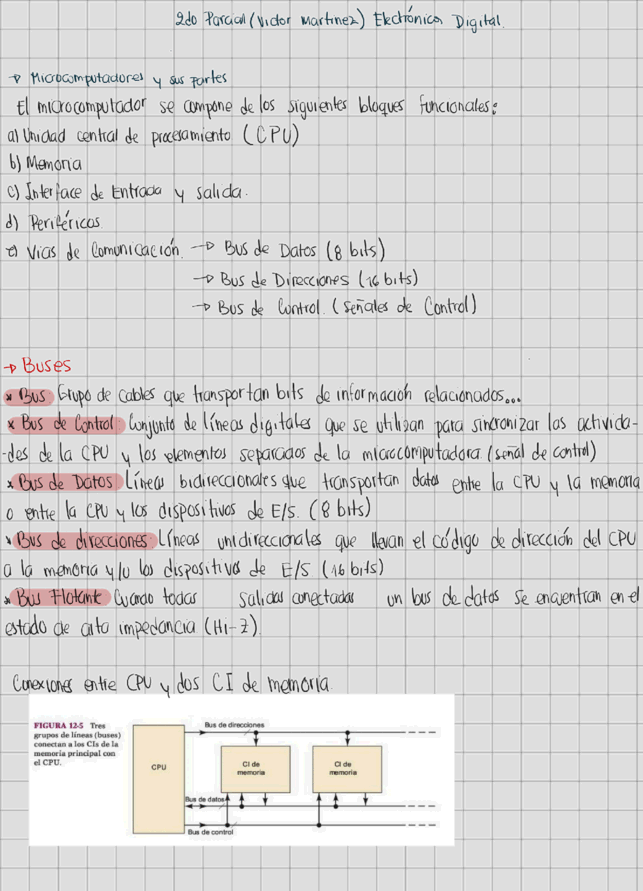 2do Parcial (Victor Martinez) Electrónica Digital.
→ Microcomputadores y sus partes
El microcomputador se compone de los siguientes bloques funcionales:
a) Unidad central de procesamiento (CPU)
b) Memoria
c) Interface de Entrada y salida.
d) Periféricos
e) Vías de Comunicación. → Bus de Datos (8 bits)
→ Bus de Direcciones (16 bits)
→ Bus de Control. (Señales de Control)
→ Buses
* Bus Grupo de cables que transportan bits de información relacionados...
* Bus de Control: Conjunto de líneas digitales que se utilizan para sincronizar las activida-
-des de la CPU y los elementos separados de la microcomputadora (señal de control)
* Bus de Datos Líneas bidireccionales que transportan datos entre la CPU y la memoria
o entre la CPU y los dispositivos de E/S. (8 bits)
* Bus de direcciones: Líneas unidireccionales que llevan el código de dirección del CPU
a la memoria y/o los dispositivos de E/S (16 bits)
* Bus Flotante Cuando todas salidas conectadas un bus de datos se encuentran en el
estado de alta impedancia (Hi-Z)
Conexiones entre CPU y dos CI de memoria.
FIGURA 12-5 Tres
grupos de líneas (buses)
conectan a los CIs de la
memoria principal con
el CPU.
Bus de direcciones
CPU
CI de
memoria
CI de
memoria
Bus de datos
Bus de control